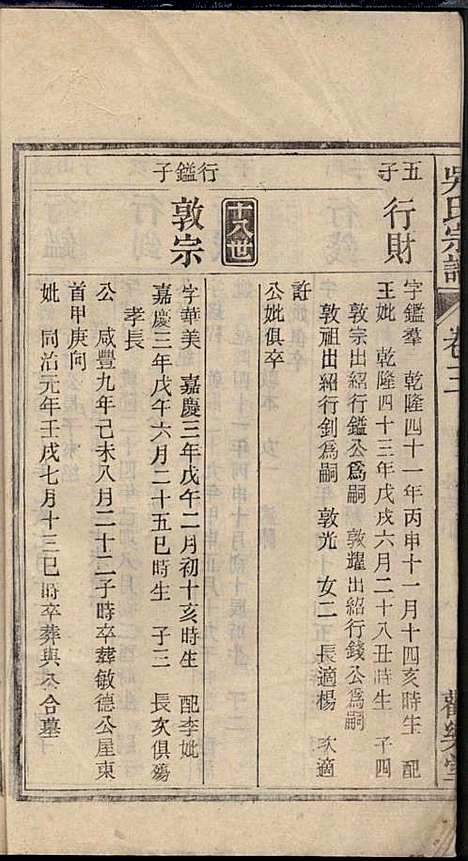 吳氏宗譜
卷三
五子
行財
字鑑羣 乾隆四十一年丙申十一月十四亥時生 配
王妣 乾隆四十三年戊戌六月二十八丑時生 子四
敦宗出紹行鎰公爲嗣 敦耀出紹行錢公爲嗣
敦祖出紹行釗爲嗣 敦光 女二 長適楊 次適
許
公妣俱卒
行鎰子
十八世
敦宗
字華美 嘉慶三年戊午二月初十亥時生 配李妣
嘉慶三年戊午六月二十五巳時生 子三 長次俱殤
孝長
公 咸豐九年己未八月二十二子時卒葬敏德公屋東
首甲庚向
妣 同治元年壬戌七月十三巳時卒葬與公合墓